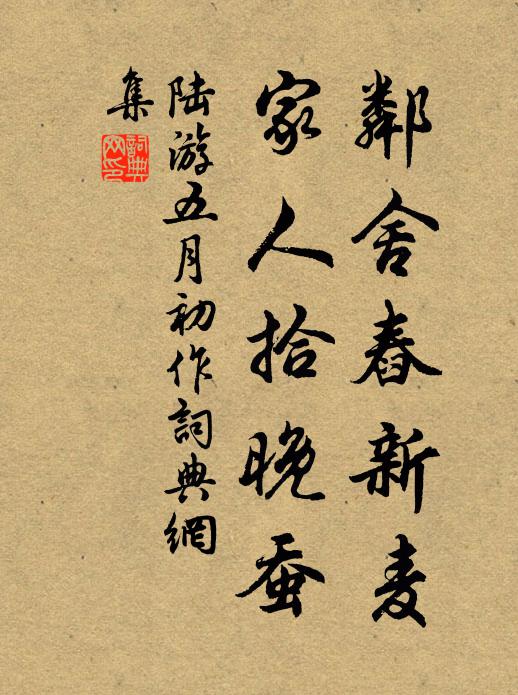 鄰舍舂新麦
家人拾晚蚕
陆游五月初作詞典網
集
詞典
网印